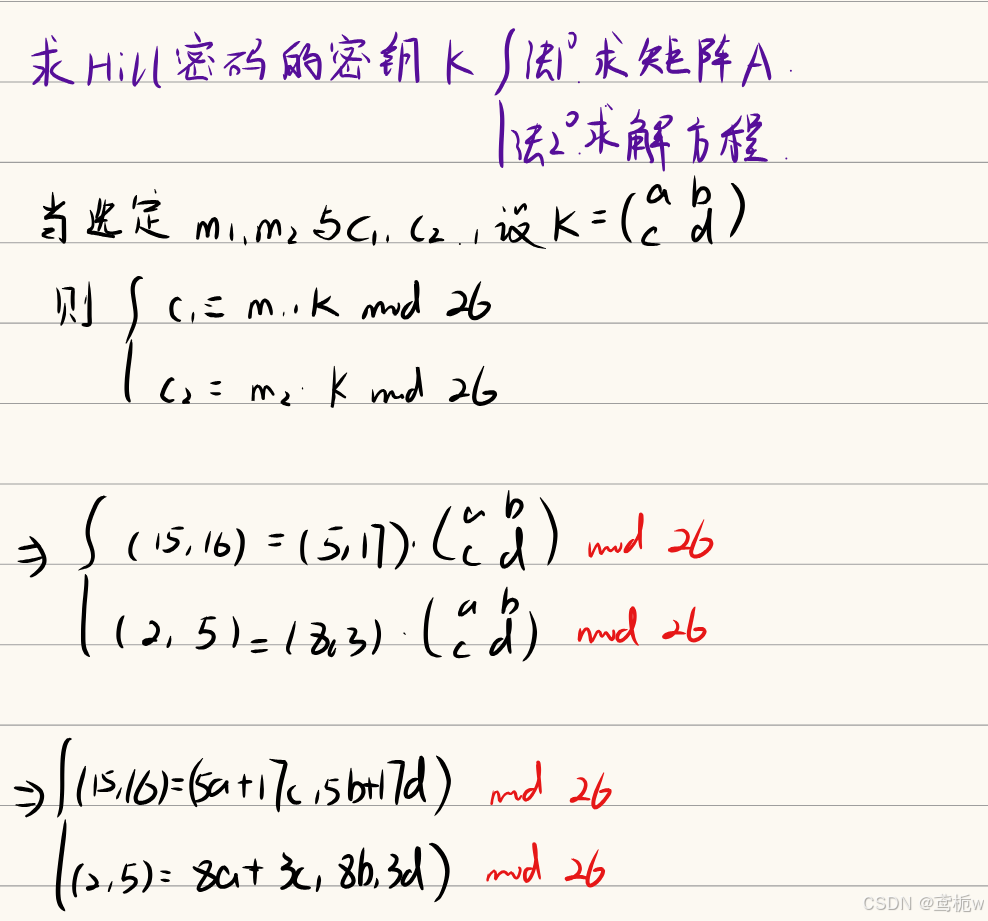 求Hill密码的密钥 K { 法1°. 求矩阵A.
法2°. 求解方程.
当选定 m₁,m₂与c₁,c₂., 设 K = (a b
c d)
则 { c₁ = m₁·K mod 26
c₂ = m₂·K mod 26
⇒ { (15,16) = (5,17)·(a b
c d) mod 26
(2, 5) = (8,3)·(a b
c d) mod 26
⇒ { (15,16)=(5a+17c,5b+17d) mod 26
(2,5)= 8a+3c, 8b,3d) mod 26
CSDN @鸢栀w